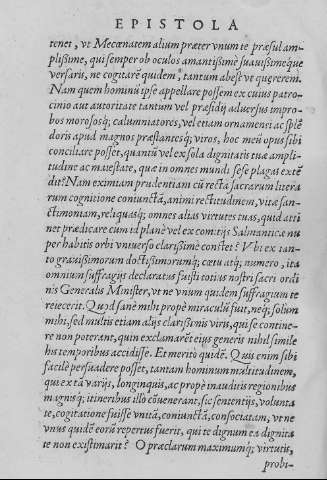 EPISTOLA
tenet, vt Mecœnatem alium præter vnum te præsul am-
plissime, qui semper ob oculos amantissimè suauissimeque
versaris, ne cogitarē quidem, tantum abest vt quærerem.
Nam quem hominū ipse appellare possem ex cuius patro-
cinio aut autoritate tantum vel præsidij aduersus impro-
bos morososq́; calumniatores, vel etiam ornamenti ac splē
doris apud magnos præstantesq́; viros, hoc meū opus sibi
conciliare posset, quantū vel ex sola dignitatis tuæ ampli-
tudine ac maiestate, quæ in omnes mundi sese plagas extē
dit? Nam eximiam prudentiam cū recta sacrarum litera
rum cognitione coniunctā, animi rectitudinem, vitæ san-
ctimoniam, reliquasq́; omnes alias virtutes tuas, quid atti
net prædicare cum id planè vel ex comitijs Salmanticæ nu
per habitis orbi vniuerso clarissimè constet? Vbi ex tan-
to grauissimorum doctissimorumq́; cœtu atq́; numero, ita
omnium suffragijs declaratus fuisti totius nostri sacri ordi
nis Generalis Minister, vt ne vnum quidem suffragium te
reiecerit. Quod sanè mihi propè miraculū fuit, neq́; solum
mihi, sed multis etiam alijs clarissimis viris, qui se contine-
re non poterant, quin exclamarēt eius generis nihil simile
his temporibus accidisse. Et meritò quidē. Quis enim sibi
facilè persuadere posset, tantam hominum multitudinem,
quæ ex tā varijs, longinquis, ac propè inauditis regionibus
magnisq́; itineribus illo cōuenerant, sic sententijs, volunta
te, cogitatione fuisse vnitā, coniunctā, consociatam, vt ne
vnus quidē eorū repertus fuerit, qui te dignum ea dignita
te non existimarit? O præclarum maximumq́; virtutis,
probi-